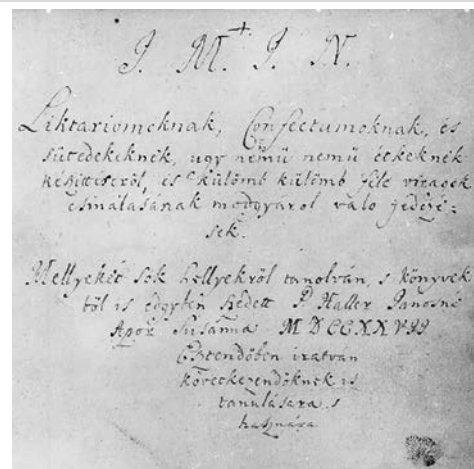 J. M. J. N.
Liktariomoknak, Confectumoknak, és
sütedekeknek, ugy némü némü étkeknék
készittéséröl, és külömb külömb féle viragok
csinálásanak módgyarol valo jedézé-
sek.
Mellyekét sok hellyekröl tanolván, s könyvek
töl is edgyben szédett P. Haller Janosné
Apor Susánna MDCCXXVII
Esztendöben iratván
következendöknek is
tanulására, s
hasznára